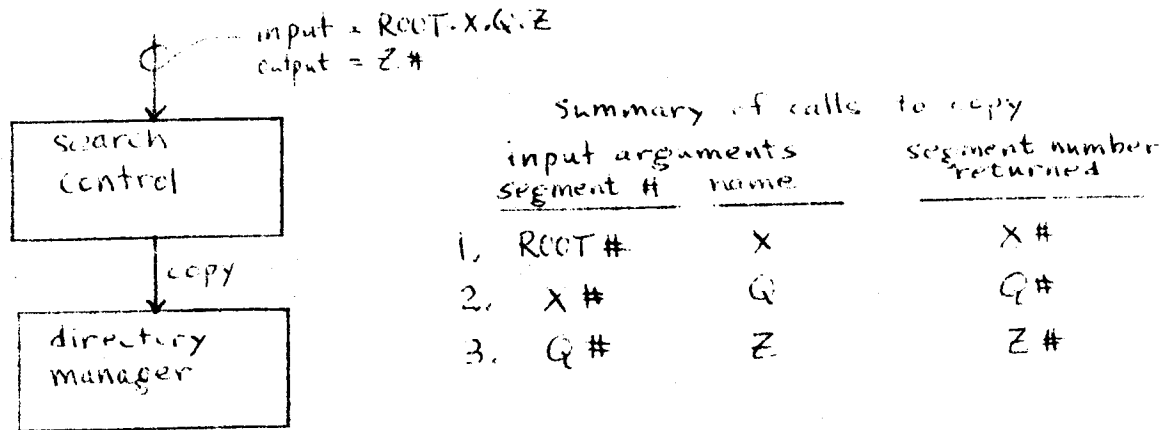 input = ROOT.X.Q.Z
output = Z#
search
control
copy
directory
manager
Summary of calls to copy
input arguments
segment # name
segment number
returned
1. ROOT# X X#
2. X# Q Q#
3. Q# Z Z#